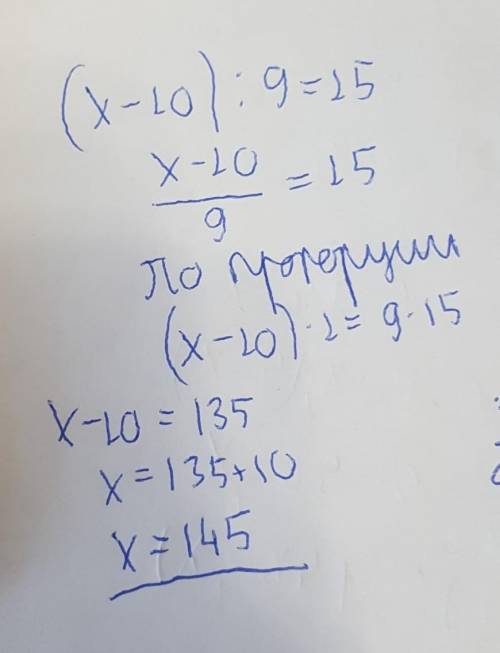 (x-10) : 9 = 15
x-10 / 9 = 15
По
(x-10) · 1 = 9 · 15
x-10 = 135
x = 135+10
x = 145